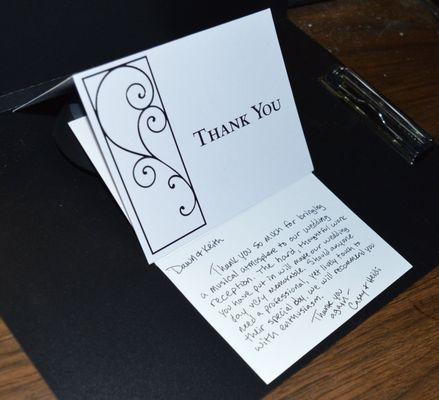 Thank You
Dawn & Keith
Thank you so much for bringing
a musical atmosphere to our wedding
reception. The hard, thoughtful work
you have put in will make our wedding
day very memorable. Should anyone
need a professional, yet lively touch to
their special day, we will recommend you
with enthusiasm.
Thank you
again~
Casey &